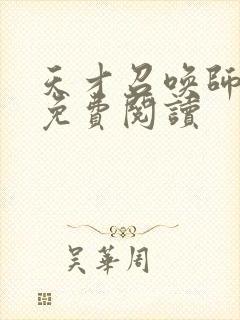 天才召喚師
免費閱讀
吴華周